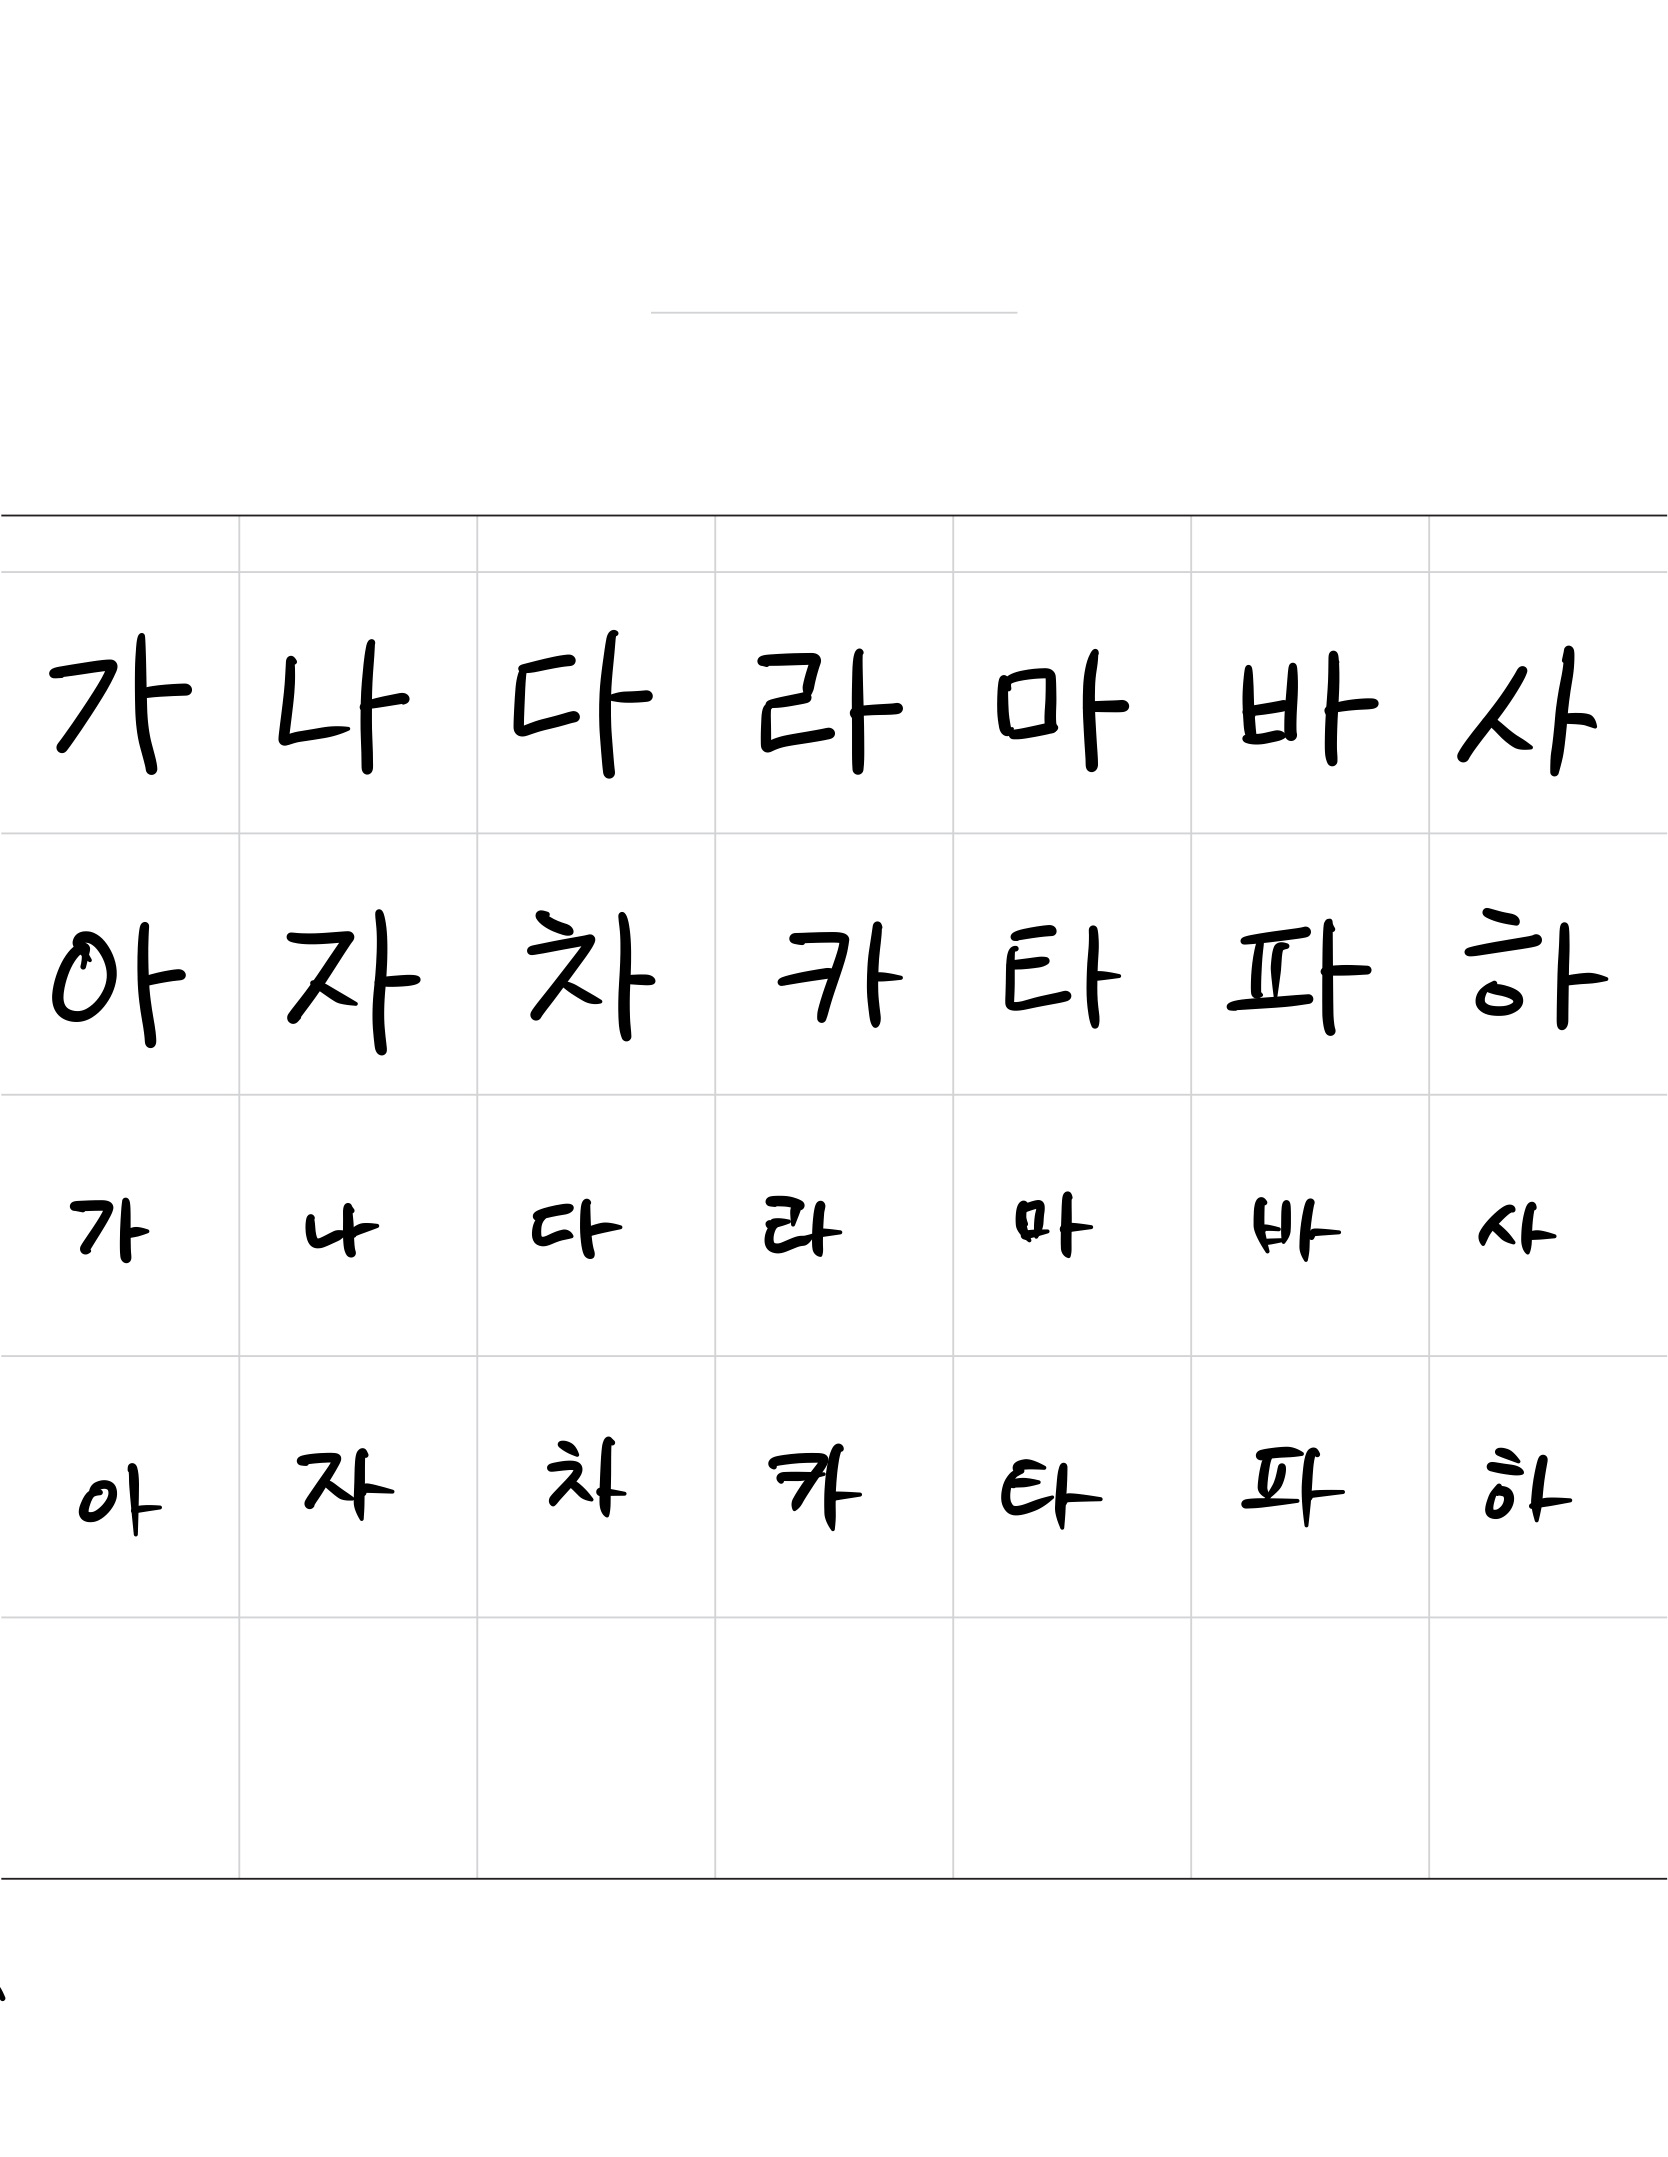 가 나 다 라 마 바 사
아 자 차 카 타 파 하
가 나 다 라 마 바 사
아 자 차 카 타 파 하